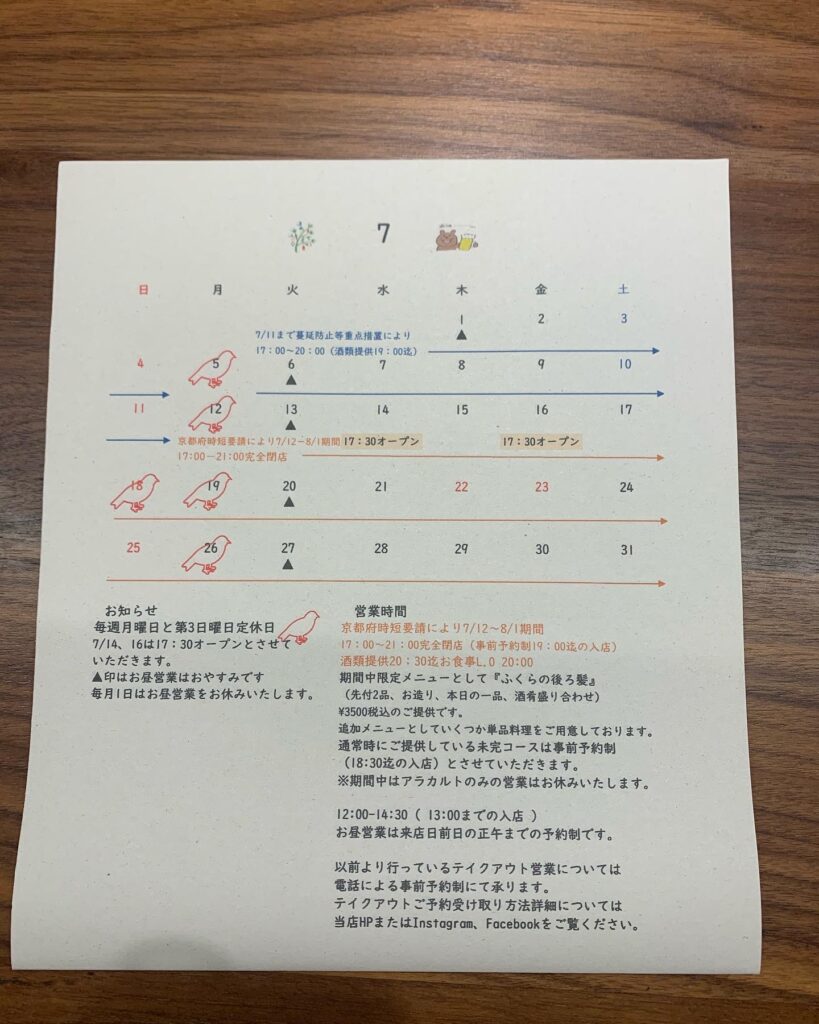 7
日 月 火 水 木 金 土
1 2 3
▲
7/11まで蔓延防止等重点措置により
17:00〜20:00（酒類提供19:00迄）
4 5 6 7 8 9 10
▲
11 12 13 14 15 16 17
▲
京都府時短要請により7/12−8/1期間 17:30オープン 17:30オープン
17:00−21:00完全閉店
18 19 20 21 22 23 24
▲
25 26 27 28 29 30 31
▲
お知らせ
毎週月曜日と第3日曜日定休日
7/14、16は17:30オープンとさせて
いただきます。
▲印はお昼営業はおやすみです
毎月1日はお昼営業をお休みいたします。
営業時間
京都府時短要請により7/12〜8/1期間
17:00〜21:00完全閉店（事前予約制19:00迄の入店）
酒類提供20:30迄お食事L.O 20:00
期間中限定メニューとして『ふくらの後ろ髪』
（先付2品、お造り、本日の一品、酒肴盛り合わせ）
¥3500税込のご提供です。
追加メニューとしていくつか単品料理をご用意しております。
通常時にご提供している未完コースは事前予約制
（18:30迄の入店）とさせていただきます。
※期間中はアラカルトのみの営業はお休みいたします。
12:00-14:30（ 13:00までの入店 ）
お昼営業は来店日前日の正午までの予約制です。
以前より行っているテイクアウト営業については
電話による事前予約制にて承ります。
テイクアウトご予約受け取り方法詳細については
当店HPまたはInstagram、Facebookをご覧ください。